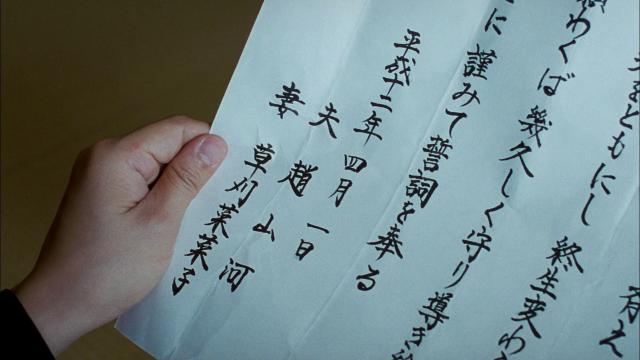 をともにし 終生変わ
わくば幾久しく守り導き
に謹みて誓詞を奉る
平成十二年四月一日
夫 趙山河
妻 草刈菜菜子